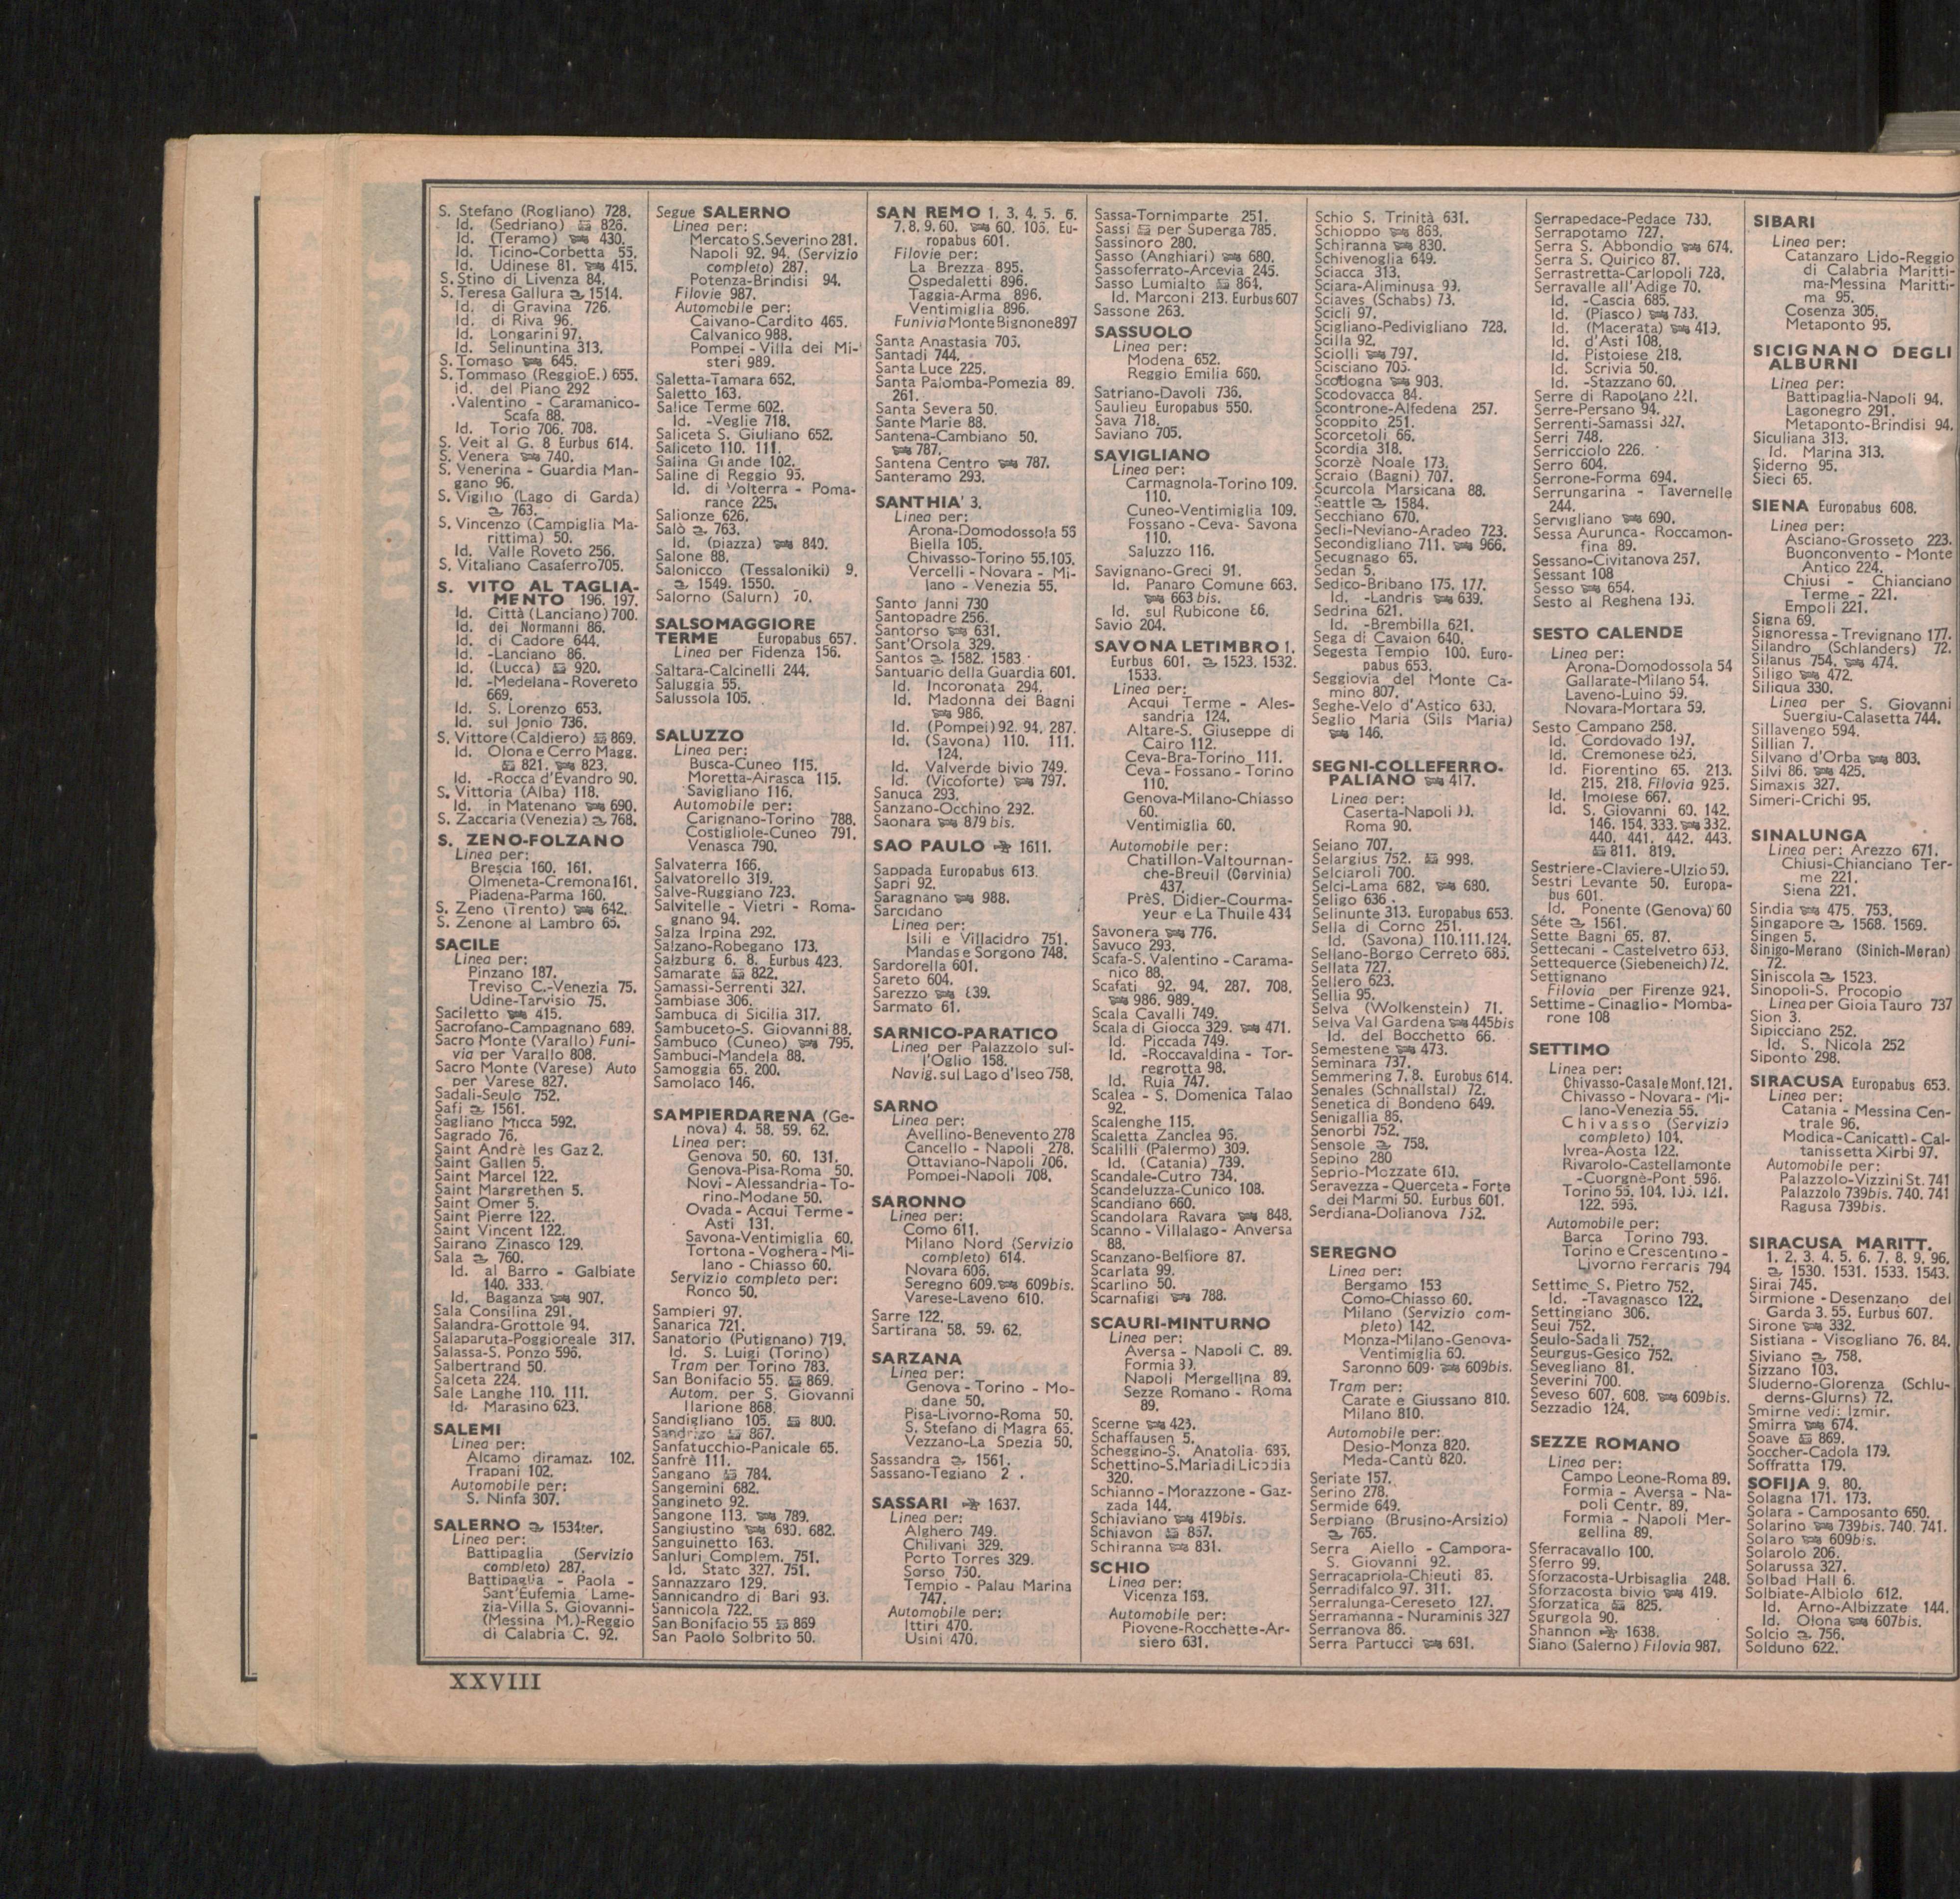 S. Stefano (Rogliano) 728.
Id. (Sedriano) 826.
Id. (Teramo) 430.
Id. Ticino-Corbetta 55.
Id. Udinese 81. 415.
S. Stino di Livenza 84.
S. Teresa Gallura 1514.
Id. di Gravina 726.
Id. di Riva 96.
Id. Longarini 97.
Id. Selinuntina 313.
S. Tomaso 645.
S. Tommaso (ReggioE.) 655.
id. del Piano 292
.Valentino - Caramanico-
Scafa 88.
Id. Torio 706. 708.
S. Veit al G. 8 Eurbus 614.
S. Venera 740.
S. Venerina - Guardia Man-
gano 96.
S. Vigilio (Lago di Garda)
763.
S. Vincenzo (Campiglia Ma-
rittima) 50.
Id. Valle Roveto 256.
S. Vitaliano Casaferro 705.
S. VITO AL TAGLIA-
MENTO 196. 197.
Id. Città (Lanciano) 700.
Id. dei Normanni 86.
Id. di Cadore 644.
Id. -Lanciano 86.
Id. (Lucca) 920.
Id. -Medelana-Rovereto
669.
Id. S. Lorenzo 653.
Id. sul Jonio 736.
S. Vittore (Caldiero) 869.
Id. Olona e Cerro Magg.
821. 823.
Id. -Rocca d'Evandro 90.
S. Vittoria (Alba) 118.
Id. in Matenano 690.
S. Zaccaria (Venezia) 768.
S. ZENO-FOLZANO
Linea per:
Brescia 160. 161.
Olmeneta-Cremona 161.
Piadena-Parma 160.
S. Zeno (Trento) 642.
S. Zenone al Lambro 65.
SACILE
Linea per:
Pinzano 187.
Treviso C.-Venezia 75.
Udine-Tarvisio 75.
Saciletto 415.
Sacrofano-Campagnano 689.
Sacro Monte (Varallo) Funi-
via per Varallo 808.
Sacro Monte (Varese) Auto
per Varese 827.
Sadali-Seulo 752.
Safi 1561.
Sagliano Micca 592.
Sagrado 76.
Saint Andrè les Gaz 2.
Saint Gallen 5.
Saint Marcel 122.
Saint Margrethen 5.
Saint Omer 5.
Saint Pierre 122.
Saint Vincent 122.
Sairano Zinasco 129.
Sala 760.
Id. al Barro - Galbiate
140. 333.
Id. Baganza 907.
Sala Consilina 291.
Salandra-Grottole 94.
Salaparuta-Poggioreale 317.
Salassa-S. Ponzo 596.
Salbertrand 50.
Salceta 224.
Sale Langhe 110. 111.
Id. Marasino 623.
SALEMI
Linea per:
Alcamo diramaz. 102.
Trapani 102.
Automobile per:
S. Ninfa 307.
SALERNO 1534ter.
Linea per:
Battipaglia (Servizio
completo) 287.
Battipaglia - Paola -
Sant'Eufemia Lame-
zia-Villa S. Giovanni-
(Messina M.)-Reggio
di Calabria C. 92.
Segue SALERNO
Linea per:
Mercato S.Severino 281.
Napoli 92. 94. (Servizio
completo) 287.
Potenza-Brindisi 94.
Filovie 987.
Automobile per:
Caivano-Cardito 465.
Calvanico 988.
Pompei - Villa dei Mi-
steri 989.
Saletta-Tamara 652.
Saletto 163.
Salice Terme 602.
Id. -Veglie 718.
Saliceta S. Giuliano 652.
Saliceto 110. 111.
Salina Grande 102.
Saline di Reggio 95.
Id. di Volterra - Poma-
rance 225.
Salionze 626.
Salò 763.
Id. (piazza) 840.
Salone 88.
Salonicco (Tessaloniki) 9.
1549. 1550.
Salorno (Salurn) 70.
SALSOMAGGIORE
TERME Europabus 657.
Linea per Fidenza 156.
Saltara-Calcinelli 244.
Saluggia 55.
Salussola 105.
SALUZZO
Linea per:
Busca-Cuneo 115.
Moretta-Airasca 115.
Savigliano 116.
Automobile per:
Carignano-Torino 788.
Costigliole-Cuneo 791.
Venasca 790.
Salvaterra 166.
Salvatorello 319.
Salve-Ruggiano 723.
Salvitelle - Vietri - Roma-
gnano 94.
Salza Irpina 292.
Salzano-Robegano 173.
Salzburg 6. 8. Eurbus 423.
Samarate 822.
Samassi-Serrenti 327.
Sambiase 306.
Sambuca di Sicilia 317.
Sambuceto-S. Giovanni 88.
Sambuco (Cuneo) 795.
Sambuci-Mandela 88.
Samoggia 65. 200.
Samolaco 146.
SAMPIERDARENA (Ge-
nova) 4. 58. 59. 62.
Linea per:
Genova 50. 60. 131.
Genova-Pisa-Roma 50.
Novi - Alessandria - To-
rino-Modane 50.
Ovada - Acqui Terme -
Asti 131.
Savona-Ventimiglia 60.
Tortona - Voghera - Mi-
lano - Chiasso 60.
Servizio completo per:
Ronco 50.
Sampieri 97.
Sanarica 721.
Sanatorio (Putignano) 719.
Id. S. Luigi (Torino)
Tram per Torino 783.
San Bonifacio 55. 869.
Autom. per S. Giovanni
Ilarione 868.
Sandigliano 105. 800.
Sandrigo 867.
Sanfatucchio-Panicale 65.
Sanfrè 111.
Sangano 784.
Sangemini 682.
Sangineto 92.
Sangone 113. 789.
Sangiustino 680. 682.
Sanguinetto 163.
Sanluri Complem. 751.
Id. Stato 327. 751.
Sannazzaro 129.
Sannicandro di Bari 93.
Sannicola 722.
San Bonifacio 55 869
San Paolo Solbrito 50.
SAN REMO 1. 3. 4. 5. 6.
7. 8. 9. 60. 60. 105. Eu-
ropabus 601.
Filovie per:
La Brezza 895.
Ospedaletti 896.
Taggia-Arma 896.
Ventimiglia 896.
Funivio Monte Bignone 897
Santa Anastasia 705.
Santadi 744.
Santa Luce 225.
Santa Palomba-Pomezia 89.
261.
Santa Severa 50.
Sante Marie 88.
Santena-Cambiano 50.
787.
Santena Centro 787.
Santeramo 293.
SANTHIA' 3.
Linea per:
Arona-Domodossola 55
Biella 105.
Chivasso-Torino 55.105.
Vercelli - Novara - Mi-
lano - Venezia 55.
Santo Janni 730
Santopadre 256.
Santorso 631.
Sant'Orsola 329.
Santos 1582. 1583
Santuario della Guardia 601.
Id. Incoronata 294.
Id. Madonna dei Bagni
986.
Id. (Pompei) 92. 94. 287.
Id. (Savona) 110. 111.
124.
Id. Valverde bivio 749.
Id. (Vicoforte) 797.
Sanuca 293.
Sanzano-Occhino 292.
Saonara 879 bis.
SAO PAULO 1611.
Sappada Europabus 613.
Sapri 92.
Saragnano 988.
Sarcidano
Linea per:
Isili e Villacidro 751.
Mandas e Sorgono 748.
Sardorella 601.
Sareto 604.
Sarezzo 839.
Sarmato 61.
SARNICO-PARATICO
Linea per Palazzolo sul-
l'Oglio 158.
Navig. sul Lago d'Iseo 758.
SARNO
Linea per:
Avellino-Benevento 278
Cancello - Napoli 278.
Ottaviano-Napoli 706.
Pompei-Napoli 708.
SARONNO
Linea per:
Como 611.
Milano Nord (Servizio
completo) 614.
Novara 606.
Seregno 609. 609bis.
Varese-Laveno 610.
Sarre 122.
Sartirana 58. 59. 62.
SARZANA
Linea per:
Genova - Torino - Mo-
dane 50.
Pisa-Livorno-Roma 50.
S. Stefano di Magra 65.
Vezzano-La Spezia 50.
Sassandra 1561.
Sassano-Tegiano 2 .
SASSARI 1637.
Linea per:
Alghero 749.
Chilivani 329.
Porto Torres 329.
Sorso 750.
Tempio - Palau Marina
747.
Automobile per:
Ittiri 470.
Usini 470.
Sassa-Tornimparte 251.
Sassi per Superga 785.
Sassinoro 280.
Sasso (Anghiari) 680.
Sassoferrato-Arcevia 245.
Sasso Lumialto 864.
Id. Marconi 213. Eurbus 607
Sassone 263.
SASSUOLO
Linea per:
Modena 652.
Reggio Emilia 660.
Satriano-Davoli 736.
Saulieu Europabus 550.
Sava 718.
Saviano 705.
SAVIGLIANO
Linea per:
Carmagnola-Torino 109.
110.
Cuneo-Ventimiglia 109.
Fossano - Ceva- Savona
110.
Saluzzo 116.
Savignano-Greci 91.
Id. Panaro Comune 663.
663 bis.
Id. sul Rubicone 86.
Savio 204.
SAVONA LETIMBRO 1.
Eurbus 601. 1523. 1532.
1533.
Linea per:
Acqui Terme - Ales-
sandria 124.
Altare-S. Giuseppe di
Cairo 112.
Ceva-Bra-Torino 111.
Ceva - Fossano - Torino
110.
Genova-Milano-Chiasso
60.
Ventimiglia 60.
Automobile per:
Chatillon-Valtournan-
che-Breuil (Cervinia)
437.
PrèS. Didier-Courma-
yeur e La Thuile 434
Savonera 776.
Savuco 293.
Scafa-S. Valentino - Carama-
nico 88.
Scafati 92. 94. 287. 708.
986. 989.
Scala Cavalli 749.
Scala di Giocca 329. 471.
Id. Piccada 749.
Id. -Roccavaldina - Tor-
regrotta 98.
Id. Ruia 747.
Scalea - S. Domenica Talao
92.
Scalenghe 115.
Scaletta Zanclea 96.
Scalilli (Palermo) 309.
Id. (Catania) 739.
Scandale-Cutro 734.
Scandeluzza-Cunico 108.
Scandiano 660.
Scandolara Ravara 848.
Scanno - Villalago - Anversa
88.
Scanzano-Belfiore 87.
Scarlata 99.
Scarlino 50.
Scarnafigi 788.
SCAURI-MINTURNO
Linea per:
Aversa - Napoli C. 89.
Formia 89.
Napoli Mergellina 89.
Sezze Romano - Roma
89.
Scerne 423.
Schaffausen 5.
Scheggino-S. Anatolia 685.
Schettino-S.Maria di Licodia
320.
Schianno - Morazzone - Gaz-
zada 144.
Schiaviano 419bis.
Schiavon 867.
Schiranna 831.
SCHIO
Linea per:
Vicenza 168.
Automobile per:
Piovene-Rocchette-Ar-
siero 631.
Schio S. Trinità 631.
Schioppo 868.
Schiranna 830.
Schivenoglia 649.
Sciacca 313.
Sciara-Aliminusa 99.
Sciaves (Schabs) 73.
Scicli 97.
Scigliano-Pedivigliano 728.
Scilla 92.
Sciolli 797.
Scisciano 705.
Scodogna 903.
Scodovacca 84.
Scontrone-Alfedena 257.
Scoppito 251.
Scorcetoli 66.
Scordia 318.
Scorzè Noale 173.
Scraio (Bagni) 707.
Scurcola Marsicana 88.
Seattle 1584.
Secchiano 670.
Seclì-Neviano-Aradeo 723.
Secondigliano 711. 966.
Secugnago 65.
Sedan 5.
Sedico-Bribano 175. 177.
Id. -Landris 639.
Sedrina 621.
Id. -Brembilla 621.
Sega di Cavaion 640.
Segesta Tempio 100. Euro-
pabus 653.
Seggiovia del Monte Ca-
mino 807.
Seghe-Velo d'Astico 630.
Seglio Maria (Sils Maria)
146.
SEGNI-COLLEFERRO-
PALIANO 417.
Linea per:
Caserta-Napoli
Roma 90.
Seiano 707.
Selargius 752. 998.
Selciaroli 700.
Selci-Lama 682. 680.
Seligo 636
Selinunte 313. Europabus 653.
Sella di Corno 251.
Id. (Savona) 110.111.124.
Sellano-Borgo Cerreto 685.
Sellata 727.
Sellero 623.
Sellia 95.
Selva (Wolkenstein) 71.
Selva Val Gardena 445bis
Id. del Bocchetto 66.
Semestene 473.
Seminara 737.
Semmering 7. 8. Eurobus 614.
Senales (Schnallstal) 72.
Senetica di Bondeno 649.
Senigallia 86.
Senorbi 752.
Sensole 758.
Sepino 280
Seprio-Mozzate 610.
Seravezza - Querceta - Forte
dei Marmi 50. Eurbus 601.
Serdiana-Dolianova 752.
SEREGNO
Linea per:
Bergamo 153
Como-Chiasso 60.
Milano (Servizio com-
pleto) 142.
Monza-Milano-Genova-
Ventimiglia 60.
Saronno 609. 609bis.
Tram per:
Carate e Giussano 810.
Milano 810.
Automobile per:
Desio-Monza 820.
Meda-Cantù 820.
Seriate 157.
Serino 278.
Sermide 649.
Serpiano (Brusino-Arsizio)
765.
Serra Aiello - Campora-
S. Giovanni 92.
Serracapriola-Chieuti 86.
Serradifalco 97. 311.
Serralunga-Cereseto 127.
Serramanna - Nuraminis 327
Serranova 86.
Serra Partucci 681.
Serrapedace-Pedace 730.
Serrapotamo 727.
Serra S. Abbondio 674.
Serra S. Quirico 87.
Serrastretta-Carlopoli 728.
Serravalle all'Adige 70.
Id. -Cascia 685.
Id. (Piasco) 793.
Id. (Macerata) 419.
Id. d'Asti 108.
Id. Pistoiese 218.
Id. Scrivia 50.
Id. -Stazzano 60.
Serre di Rapolano 221.
Serre-Persano 94.
Serrenti-Samassi 327.
Serri 748.
Serricciolo 226.
Serro 604.
Serrone-Forma 694.
Serrungarina - Tavernelle
244.
Servigliano 690.
Sessa Aurunca- Roccamon-
fina 89.
Sessano-Civitanova 257.
Sessant 108
Sesso 654.
Sesto al Reghena 196.
SESTO CALENDE
Linea per:
Arona-Domodossola 54
Gallarate-Milano 54.
Laveno-Luino 59.
Novara-Mortara 59.
Sesto Campano 258.
Id. Cordovado 197.
Id. Cremonese 625.
Id. Fiorentino 65. 213.
215. 218. Filovia 925.
Id. Imolese 667.
Id. S. Giovanni 60. 142.
146. 154. 333. 332.
440. 441. 442. 443.
811. 819.
Sestriere-Claviere-Ulzio 50.
Sestri Levante 50. Europa-
bus 601.
Id. Ponente (Genova) 60
Séte 1561.
Sette Bagni 65. 87.
Settecani - Castelvetro 663.
Settequerce (Siebeneich) 72.
Settignano
Filovia per Firenze 924.
Settime - Cinaglio - Momba-
rone 108
SETTIMO
Linea per:
Chivasso-Casale Monf. 121.
Chivasso - Novara - Mi-
lano-Venezia 55.
Chivasso (Servizio
completo) 104.
Ivrea-Aosta 122.
Rivarolo-Castellamonte
-Cuorgnè-Pont 596.
Torino 55. 104. 105. 121.
122. 596.
Automobile per:
Barca Torino 793.
Torino e Crescentino -
Livorno Ferraris 794
Settimo S. Pietro 752.
Id. -Tavagnasco 122.
Settingiano 306.
Seui 752.
Seulo-Sadali 752.
Seurgus-Gesico 752.
Sevegliano 81.
Severini 700.
Seveso 607. 608. 609bis.
Sezzadio 124.
SEZZE ROMANO
Linea per:
Campo Leone-Roma 89.
Formia - Aversa - Na-
poli Centr. 89.
Formia - Napoli Mer-
gellina 89.
Sferracavallo 100.
Sferro 99.
Sforzacosta-Urbisaglia 248.
Sforzacosta bivio 419.
Sforzatica 825.
Sgurgola 90.
Shannon 1638.
Siano (Salerno) Filovia 987.
SIBARI
Linea per:
Catanzaro Lido-Reggio
di Calabria Maritti-
ma-Messina Maritti-
ma 95.
Cosenza 305.
Metaponto 95.
SICIGNANO DEGLI
ALBURNI
Linea per:
Battipaglia-Napoli 94.
Lagonegro 291.
Metaponto-Brindisi 94.
Siculiana 313.
Id. Marina 313.
Siderno 95.
Sieci 65.
SIENA Europabus 608.
Linea per:
Asciano-Grosseto 223.
Buonconvento - Monte
Antico 224.
Chiusi - Chianciano
Terme - 221.
Empoli 221.
Signa 69.
Signoressa - Trevignano 177.
Silandro (Schlanders) 72.
Silanus 754. 474.
Siligo 472.
Siliqua 330.
Linea per S. Giovanni
Suergiu-Calasetta 744.
Sillavengo 594.
Sillian 7.
Silvano d'Orba 803.
Silvi 86. 425.
Simaxis 327.
Simeri-Crichi 95.
SINALUNGA
Linea per: Arezzo 671.
Chiusi-Chianciano Ter-
me 221.
Siena 221.
Sindia 475. 753.
Singapore 1568. 1569.
Singen 5.
Sinigo-Merano (Sinich-Meran)
72.
Siniscola 1523.
Sinopoli-S. Procopio
Linea per Gioia Tauro 737
Sion 3.
Sipicciano 252.
Id. S. Nicola 252
Siponto 298.
SIRACUSA Europabus 653.
Linea per:
Catania - Messina Cen-
trale 96.
Modica-Canicattì - Cal-
tanissetta Xirbi 97.
Automobile per:
Palazzolo-Vizzini St. 741
Palazzolo 739bis. 740. 741
Ragusa 739bis.
SIRACUSA MARITT.
1. 2. 3. 4. 5. 6. 7. 8. 9. 96.
1530. 1531. 1533. 1543.
Sirai 745.
Sirmione - Desenzano del
Garda 3. 55. Eurbus 607.
Sirone 332.
Sistiana - Visogliano 76. 84.
Siviano 758.
Sizzano 103.
Sluderno-Glorenza (Schlu-
derns-Glurns) 72.
Smirne vedi: Izmir.
Smirra 674.
Soave 869.
Soccher-Cadola 179.
Soffratta 179.
SOFIJA 9. 80.
Solagna 171. 173.
Solara - Camposanto 650.
Solarino 739bis. 740. 741.
Solaro 609bis.
Solarolo 206.
Solarussa 327.
Solbad Hall 6.
Solbiate-Albiolo 612.
Id. Arno-Albizzate 144.
Id. Olona 607bis.
Solcio 756.
Solduno 622.
XXVIII